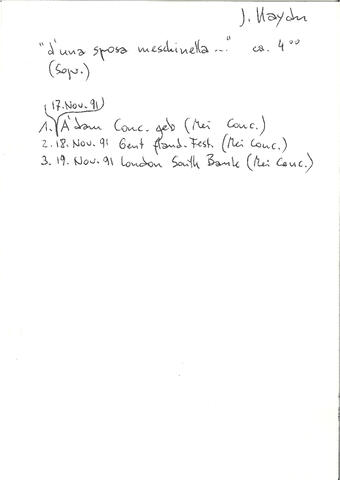 J. Haydn
"d'una sposa meschinella..." ca. 4°°
(Sop.)
17. Nov. 91
1. A'dam Conc. geb (Mei Conc.)
2. 18. Nov. 91 Gent Fland. Fest. (Mei Conc.)
3. 19. Nov. 91 London South Bank (Mei Conc.)